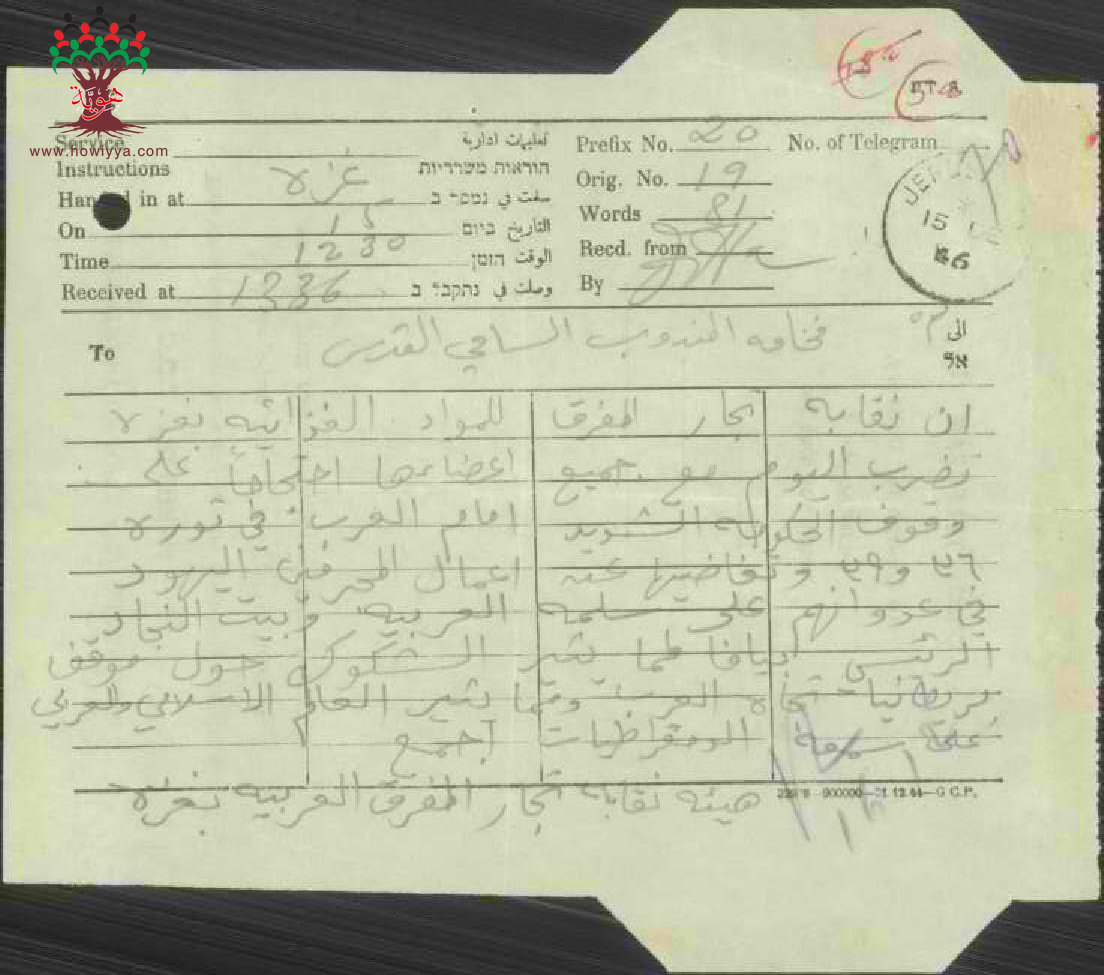 هوية
www.howlyya.com
58
54
Service تعليمات ادارية
Instructions הוראות משרדיות
Handed in at غزه سلمت في נמסר ב
On 15 التاريخ ביום
Time 1230 الوقت הזמן
Received at 1336 وصلت في נתקבל ב
Prefix No. 20 No. of Telegram
Orig. No. 19
Words 81
Recd. from
By
15
46
To فخامه المندوب السامي القدس الى אל
ان نقابه تجار المفرق للمواد الغذائيه بغزه
تضرب اليوم مع جميع اعضاءها احتجاجاً على
وقوف الحكومه الشديد امام العرب في ثورة
٣٦ و٣٩ وتغاضيها عن اعمال المجرمين اليهود
في عدوانهم على سلمه العربيه وبيت النجاد
الرئيسي بيافا مما يثير الشكوك حول موقف
بريطانيا تجاه العرب ومما يثير العالم الاسلامي والعربي
على الدمقراطيات اجمع
هيئه نقابه تجار المفرق العربيه بغزه
900000—31.12.44—G.C.P.